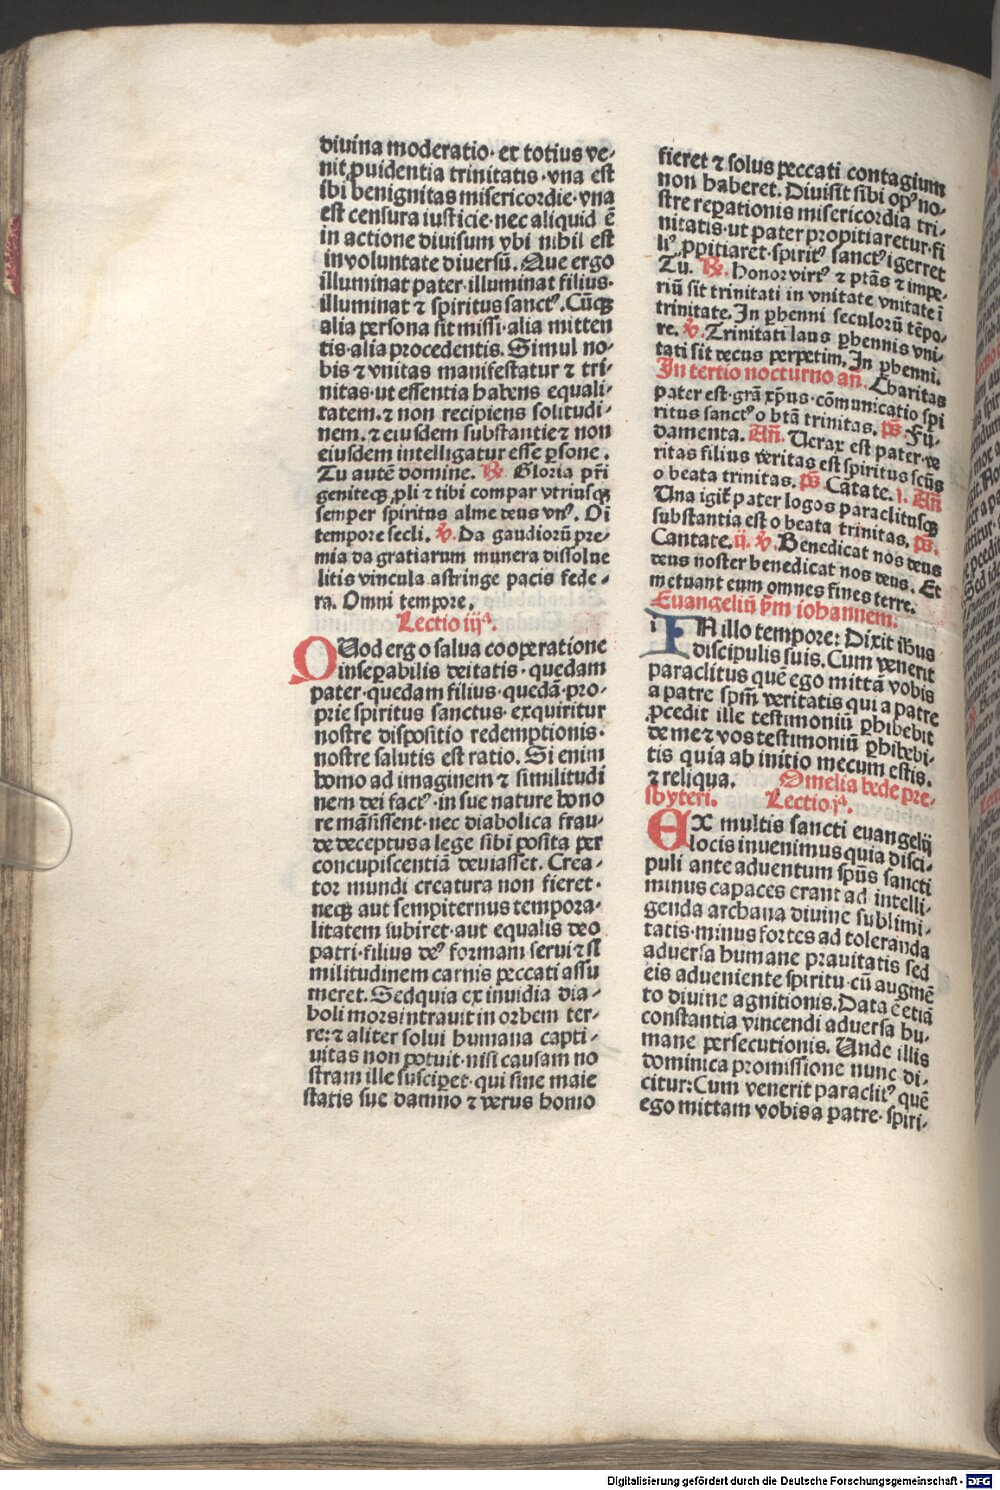 diuina moderatio· et totius ve-
nit ꝓuidentia trinitatis·vna est
ibi benignitas misericordie·vna
est censura iusticie·nec aliquid ē
in actione diuisum vbi nihil est
in voluntate diuersū. Que ergo
illuminat pater·illuminat filius·
illuminat ⁊ spiritus sanctꝰ. Cūqꝫ
alia persona sit missi·alia mitten
tis·alia procedentis. Simul no-
bis ⁊ vnitas manifestatur ⁊ tri-
nitas·ut essentia habens equali-
tatem·⁊ non recipiens solitudi-
nem·⁊ eiusdem substantie⁊ non
eiusdem intelligatur esse ꝑsone.
Tu autē domine. ℟ Gloria pr̄i
geniteqꝫ ꝓli ⁊ tibi compar vtriusqꝫ
semper spiritus alme deus vnꝰ. Oī
tempore secli. ℣. Da gaudiorū pre-
mia da gratiarum munera dissolue
litis vincula astringe pacis fede-
ra. Omni tempore.
Lectio iijª.
QUod ergo salua cooperatione
inseꝑabilis deitatis· quedam
pater·quedam filius·quedā·pro-
prie spiritus sanctus· exquiritur
nostre dispositio redemptionis·
nostre salutis est ratio. Si enim
homo ad imaginem ⁊ similitudi
nem dei factꝰ·in sue nature hono
re māsissent·nec diabolica frau-
de deceptus a lege sibi posita per
concupiscentiā deuiasset. Crea-
tor mundi creatura non fieret·
neqꝫ aut sempiternus tempora-
litatem subiret·aut equalis deo
patri·filius deꝰ formam serui ⁊ si
militudinem carnis peccati assu
meret. Sed quia ex inuidia dia-
boli mors intrauit in orbem ter-
re:⁊ aliter solui humana capti-
uitas non potuit·nisi causam no
stram ille susciperet·qui sine maie
statis sue damno ⁊ verus homo
fieret ⁊ solus peccati contagium
non haberet. Diuisit sibi opꝰ no-
stre reꝑationis misericordia tri-
nitatis·ut pater propitiaretur·fi
liꝰ ꝓpitiaret·spiritꝰ sanctꝰ igerret
Tu. ℟. Honor virtꝰ ⁊ ptās ⁊ impe-
riū sit trinitati in vnitate vnitate ī
trinitate. In ꝑhenni seculorū tēpo-
re. ℣. Trinitati laus ꝑhennis vni-
tati sit decus perpetim. In ꝑhenni.
In tertio nocturno añ. Charitas
pater est·grā xp̄us·cōmunicatio spi
ritus sanctꝰ o btā trinitas. p̄s. Fū-
damenta. Añ. Uerax est pater·ve
ritas filius veritas est spiritus scūs
o beata trinitas. p̄s Cātate. i. Añ
Una igit̄ pater logos paraclitusqꝫ
substantia est o beata trinitas. p̄s.
Cantate. ij. ℣. Benedicat nos deus
deus noster benedicat nos deus. Et
metuant eum omnes fines terre.
Euangeliū ẜm iohannem.
i IN illo tempore: Dixit ih̄us
discipulis suis. Cum venerit
paraclitus quē ego mittā vobis
a patre spm̄ veritatis qui a patre
ꝓcedit ille testimoniū ꝑhibebit
de me ⁊ vos testimoniū ꝑhibebi-
tis quia ab initio mecum estis.
⁊ reliqua. Omelia bede pre-
sbyteri. Lectio jª.
EX multis sancti euangelij
locis inuenimus quia disci-
puli ante aduentum spūs sancti
minus capaces erant ad intelli-
genda archana diuine sublimi-
tatis·minus fortes ad toleranda
aduersa humane prauitatis sed
eis adueniente spiritu·cū augmē
to diuine agnitionis. Data ē etiā
constantia vincendi aduersa hu-
mane persecutionis. Unde illis
dominica promissione nunc di-
citur: Cum venerit paraclitꝰ quē
ego mittam vobis a patre·spiri-
Digitalisierung gefördert durch die Deutsche Forschungsgemeinschaft - DFG